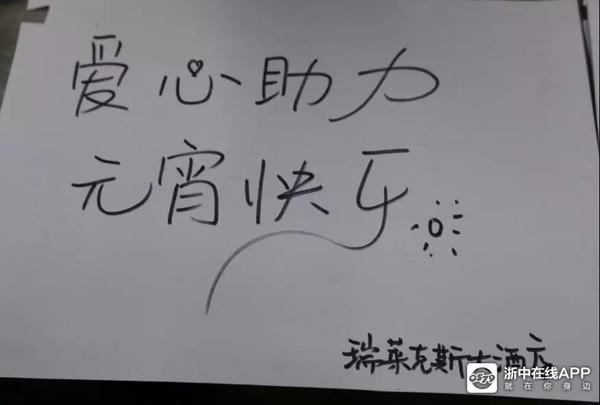 爱心助力
元宵快乐
瑞莱克斯大酒店
浙中在线APP
就在你身边